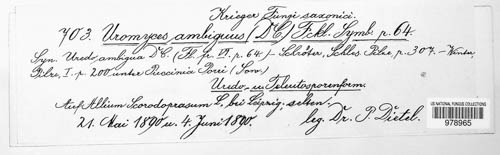 Krieger Fungi saxonici.
703. Uromyces ambiguus (DC.) Fckl. Symb. p. 64.
Syn. Uredo ambigua DC. (Fl. fr. VI. p. 64) – Schröter, Schles. Pilze, p. 307. – Winter,
Pilze, I. p. 200 unter Puccinia Porri (Sow.)
Uredo- u. Teleutosporenform.
Auf Allium Scorodoprasum L. bei Leipzig, selten;
21. Mai 1890 u. 4. Juni 1890. leg. Dr. P. Dietel.
US NATIONAL FUNGUS COLLECTIONS
978965